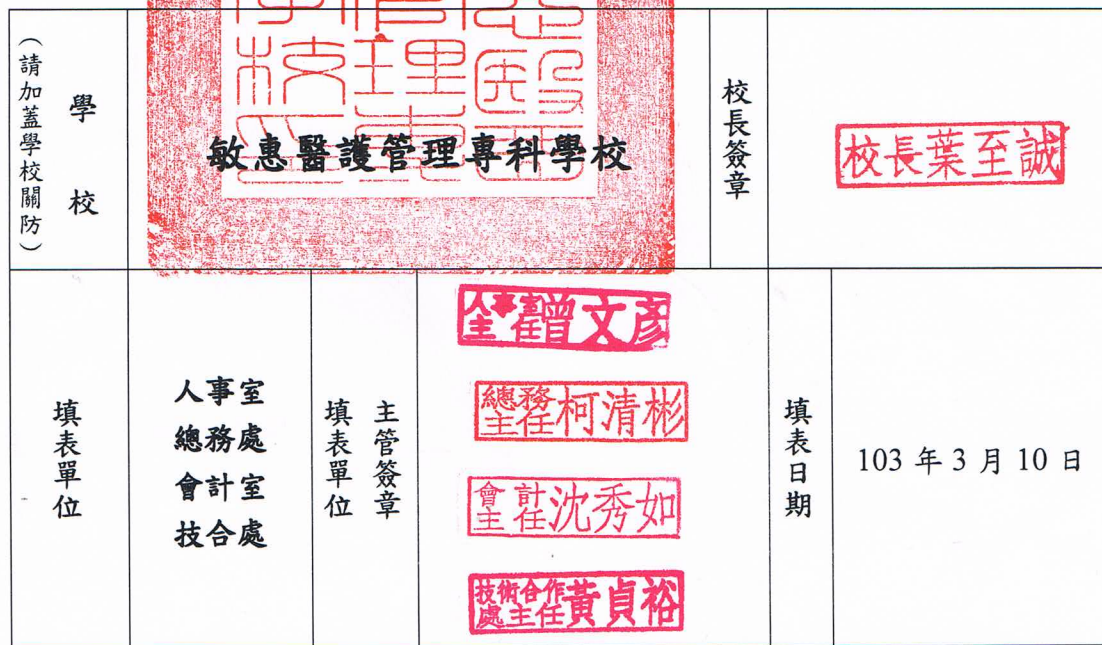 學校
（請加蓋學校關防）
敏惠醫護管理專科學校
校長簽章
校長葉至誠
填表單位
人事室
總務處
會計室
技合處
填表單位
主管簽章
人事室主任曾文彥
總務主任柯清彬
會計主任沈秀如
技術合作處主任黃貞裕
填表日期
103 年 3 月 10 日